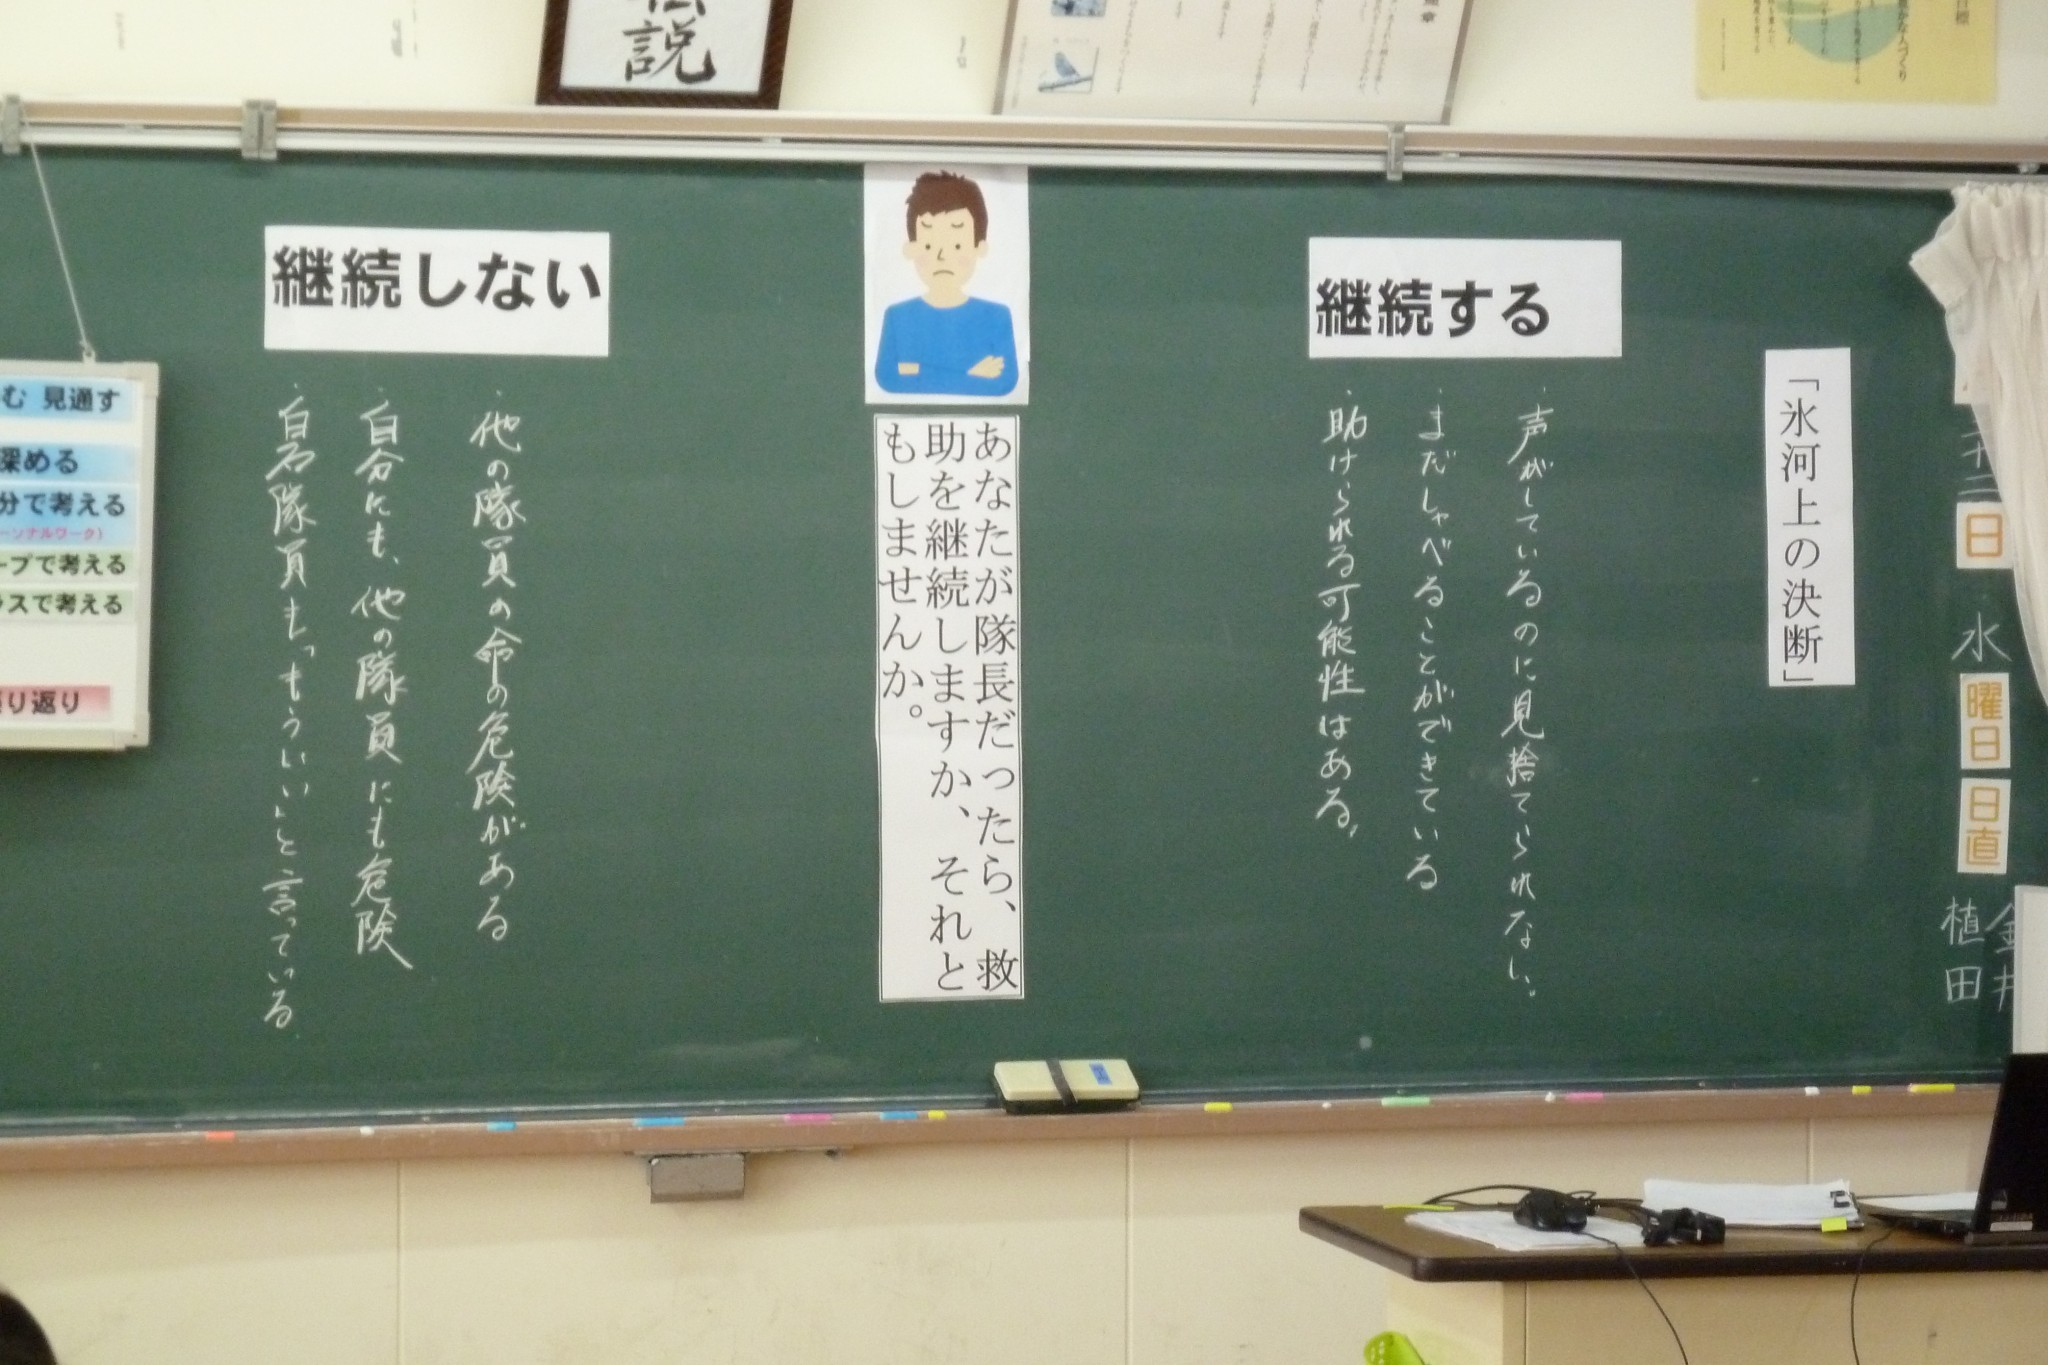 説
「氷河上の決断」
継続する
・声がしているのに見捨てられない。
・まだしゃべることができている
・助けられる可能性はある。
あなたが隊長だったら、救
助を継続しますか、それと
もしませんか。
継続しない
・他の隊員の命の危険がある
・自分にも、他の隊員にも危険
・白石隊員も「もういい」と言っている
日
水
曜日
日直
金井
植田
む 見通す
深める
分で考える
ーソナルワーク)
ープで考える
ラスで考える
り返り